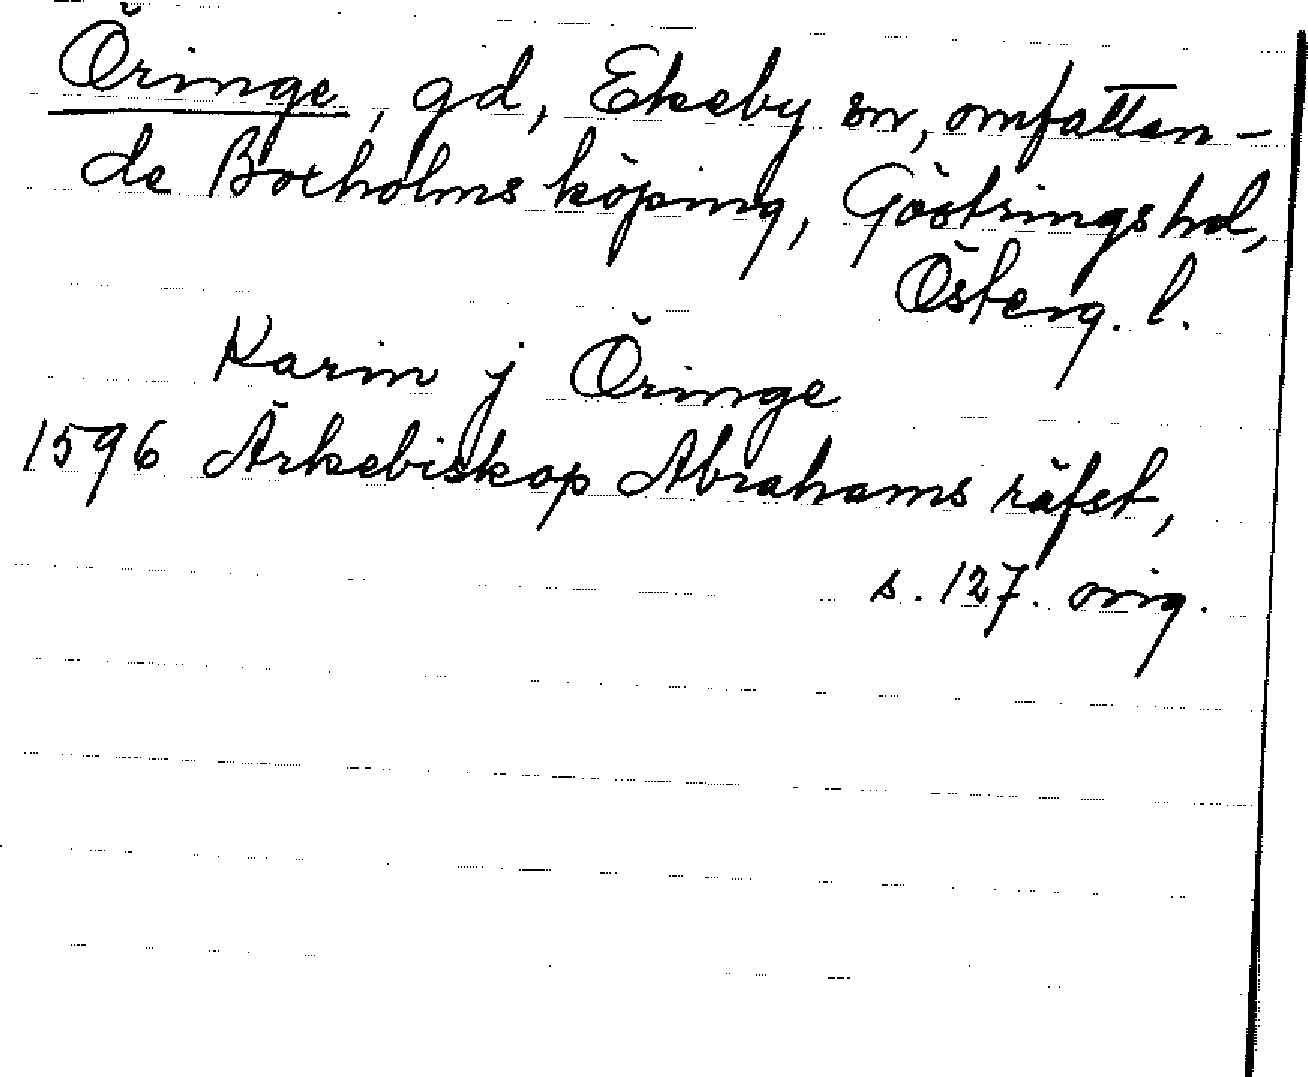 Öringe, gd, Ekeby sn, omfattan-
de Boxholms köping, Göstrings hd,
Österg. l.
Karin j Öringe
1596 Ärkebiskop Abrahams räfst,
s. 127. orig.